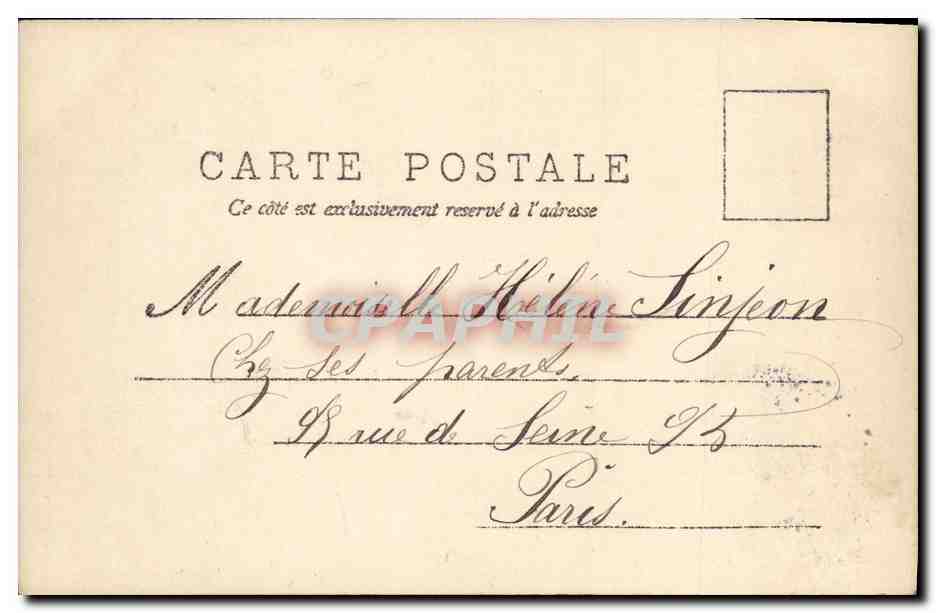 CARTE POSTALE
Ce côté est exclusivement reservé à l'adresse
Mademoiselle Hélène Sinjeon
CPAPHIL
Chez ses parents.
rue de Seine
Paris.